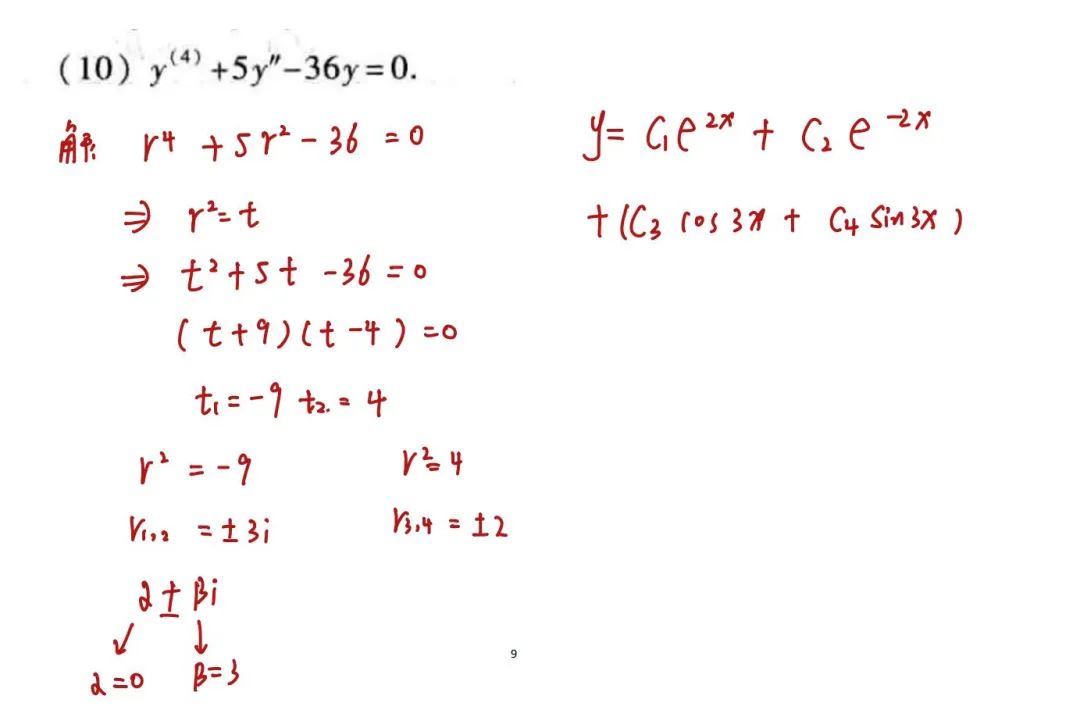 (10) y⁽⁴⁾+5y″−36y=0.
解: r⁴ + 5r² − 36 = 0
⇒ r² = t
⇒ t² + 5t − 36 = 0
(t+9)(t−4) = 0
t₁ = −9 t₂. = 4
r² = −9 r² = 4
r₁,₂ = ±3i r₃,₄ = ±2
α ± βi
↙ ↓
α=0 β=3
y = C₁e²ˣ + C₂e⁻²ˣ
+ (C₃ cos 3x + C₄ sin 3x)
9